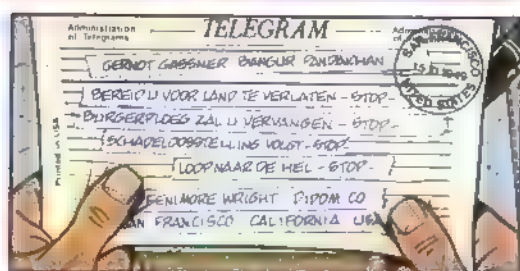 Administration of Telegrams
TELEGRAM
SAN FRANCISCO
UNITED STATES
GERNOT GASSNER BANGUR
BEREID U VOOR LAND TE VERLATEN - STOP -
BURGERPLOEG ZAL U VERVANGEN - STOP -
SCHADELOOSSTELLING VOLGT - STOP -
LOOP NAAR DE HEL - STOP -
Printed in USA
WRIGHT DIDOM CO
SAN FRANCISCO CALIFORNIA USA